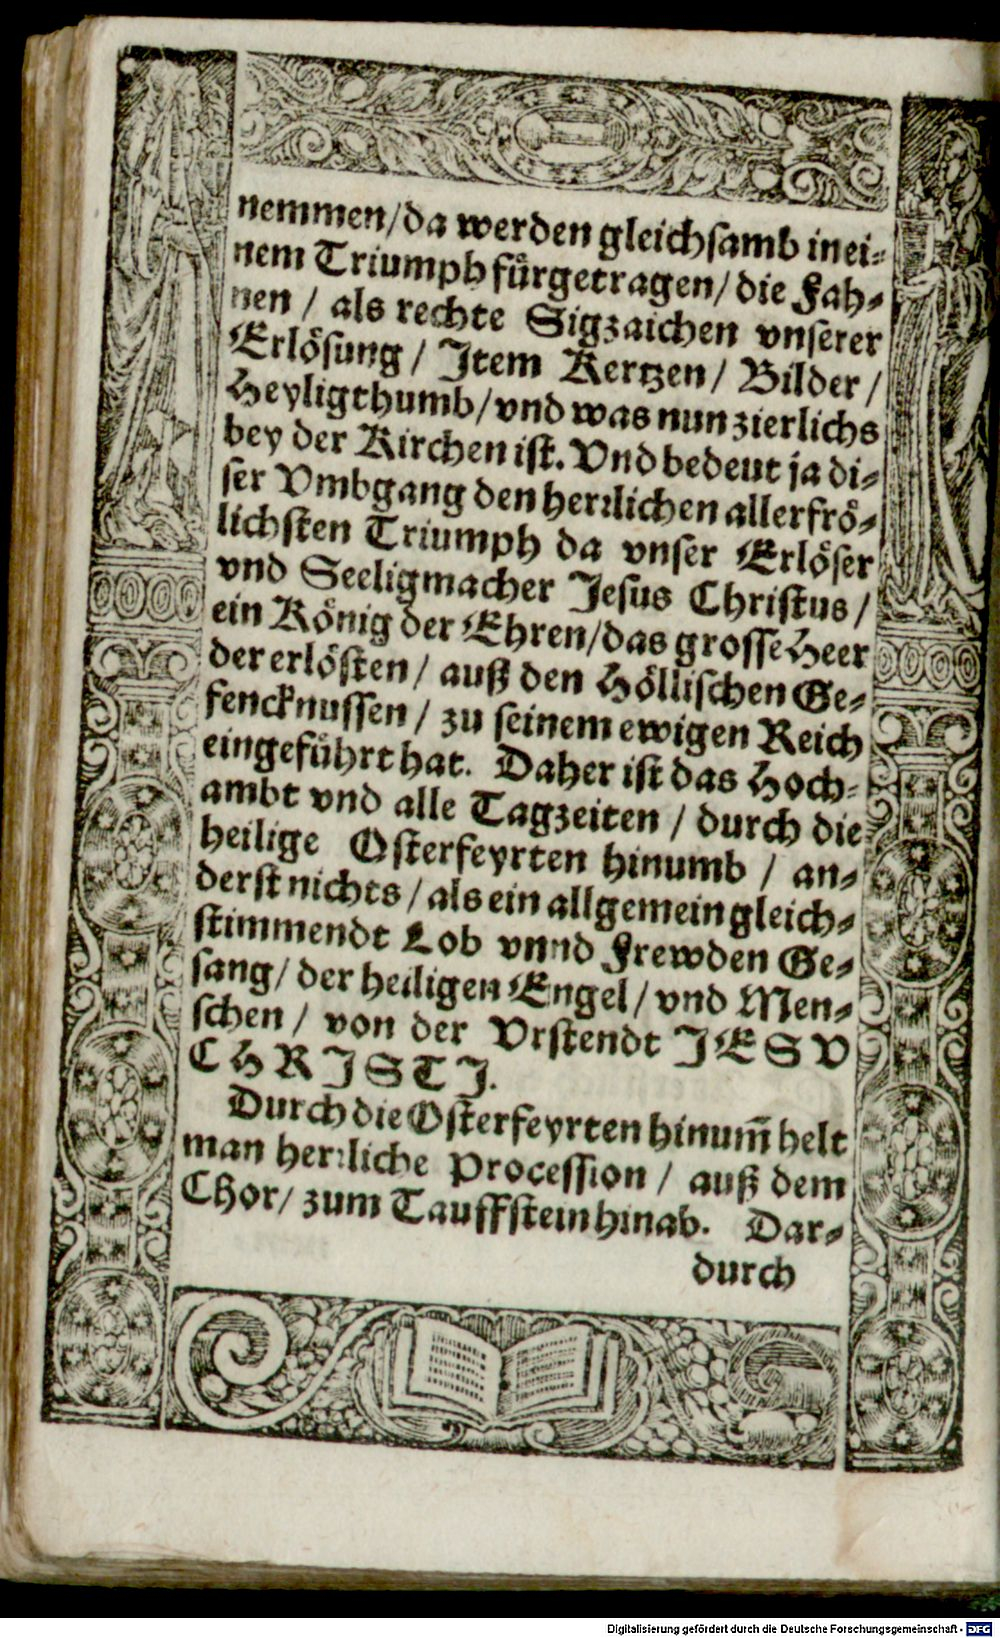 nemmen/da werden gleichsamb in ei⸗
nem Triumph fuͤrgetragen/ die Fah⸗
nen / als rechte Sigzaichen vnserer
Erloͤsung / Item Kertzen/ Bilder /
Heyligthumb/vnd was nun zierlichs
bey der Kirchen ist. Vnd bedeut ja di⸗
ser Vmbgang den herꝛlichen allerfroͤ⸗
lichsten Triumph da vnser Erloͤser
vnd Seeligmacher Jesus Christus /
ein Koͤnig der Ehren/das grosse Heer
der erloͤsten / auß den Hoͤllischen Ge⸗
fencknussen / zu seinem ewigen Reich
eingefuͤhrt hat. Daher ist das Hoch⸗
ambt vnd alle Tagzeiten / durch die
heilige Osterfeyrten hinumb / an⸗
derst nichts / als ein allgemein gleich⸗
stimmendt Lob vnnd Frewden Ge⸗
sang/ der heiligen Engel/ vnd Men⸗
schen / von der Vrstendt JESV
CHRISTI.
Durch die Osterfeyrten hinum̃ helt
man herꝛliche Procession / auß dem
Chor/ zum Tauffstein hinab. Dar⸗
durch
Digitalisierung gefördert durch die Deutsche Forschungsgemeinschaft - DFG